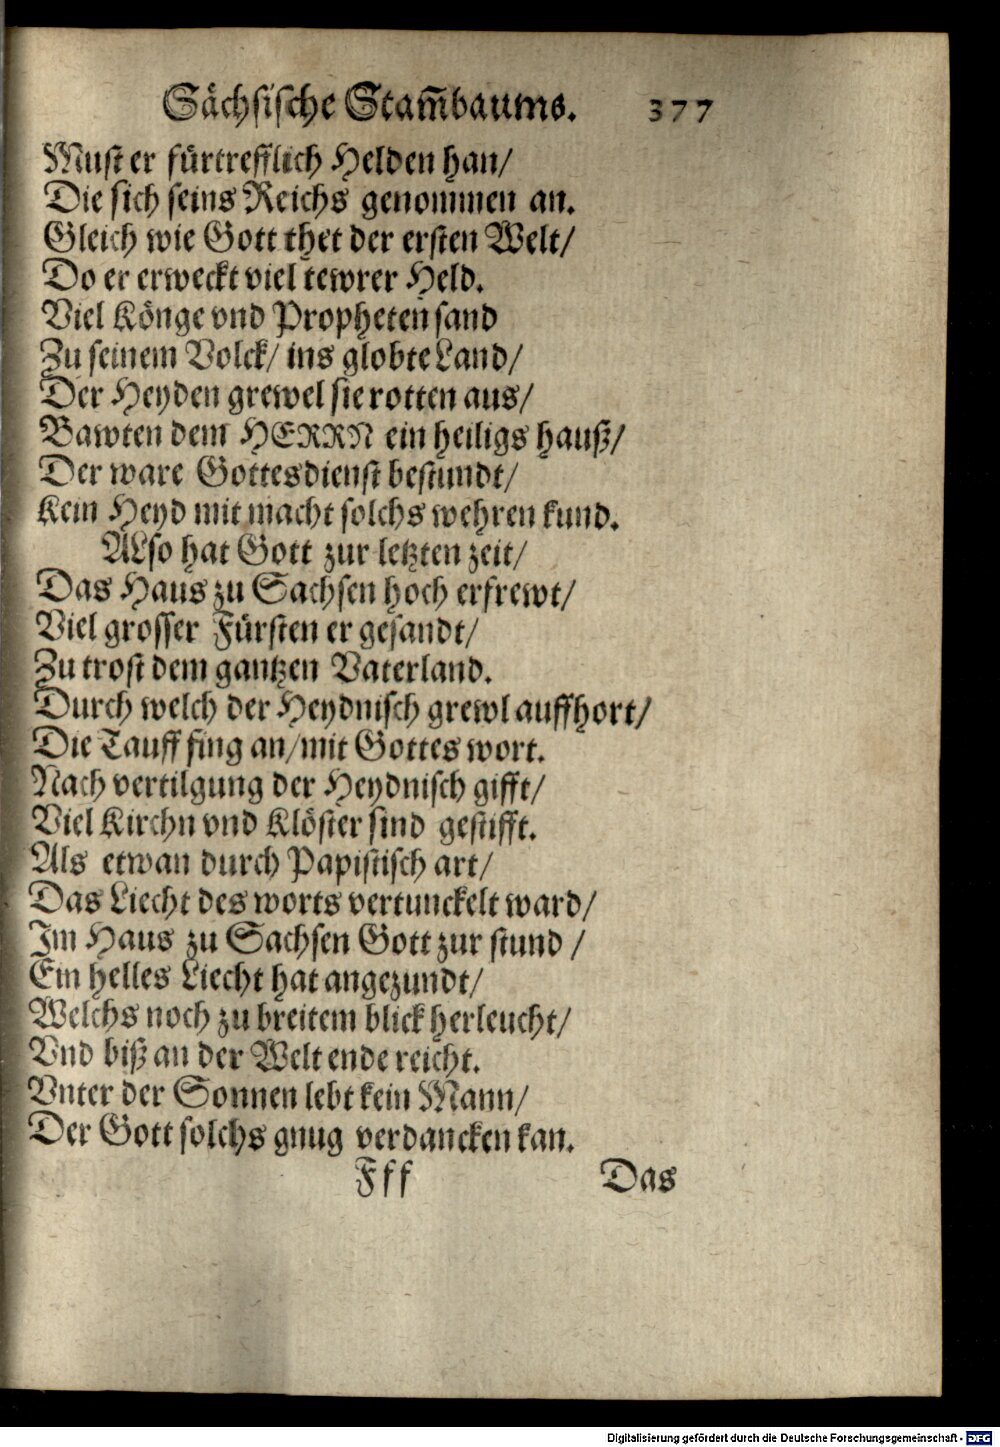 Sächsische Stam̄baums. 377
Must er fürtrefflich Helden han/
Die sich seins Reichs genommen an.
Gleich wie Gott thet der ersten Welt/
Do er erweckt viel tewrer Held.
Viel Könge vnd Propheten sand
Zu seinem Volck/ ins globte Land/
Der Heyden grewel sie rotten aus/
Bawten dem HERRN ein heiligs hauß/
Der ware Gottesdienst bestundt/
Kein Heyd mit macht solchs wehren kund.
ALso hat Gott zur letzten zeit/
Das Haus zu Sachsen hoch erfrewt/
Viel grosser Fürsten er gesandt/
Zu trost dem gantzen Vaterland.
Durch welch der Heydnisch grewl auffhort/
Die Tauff fing an/mit Gottes wort.
Nach vertilgung der Heydnisch gifft/
Viel Kirchn vnd Klöster sind gestifft.
Als etwan durch Papistisch art/
Das Liecht des worts vertunckelt ward/
Im Haus zu Sachsen Gott zur stund /
Ein helles Liecht hat angezundt/
Welchs noch zu breitem blick herleucht/
Vnd biß an der Welt ende reicht.
Vnter der Sonnen lebt kein Mann/
Der Gott solchs gnug verdancken kan.
Fff Das
Digitalisierung gefördert durch die Deutsche Forschungsgemeinschaft - DFG